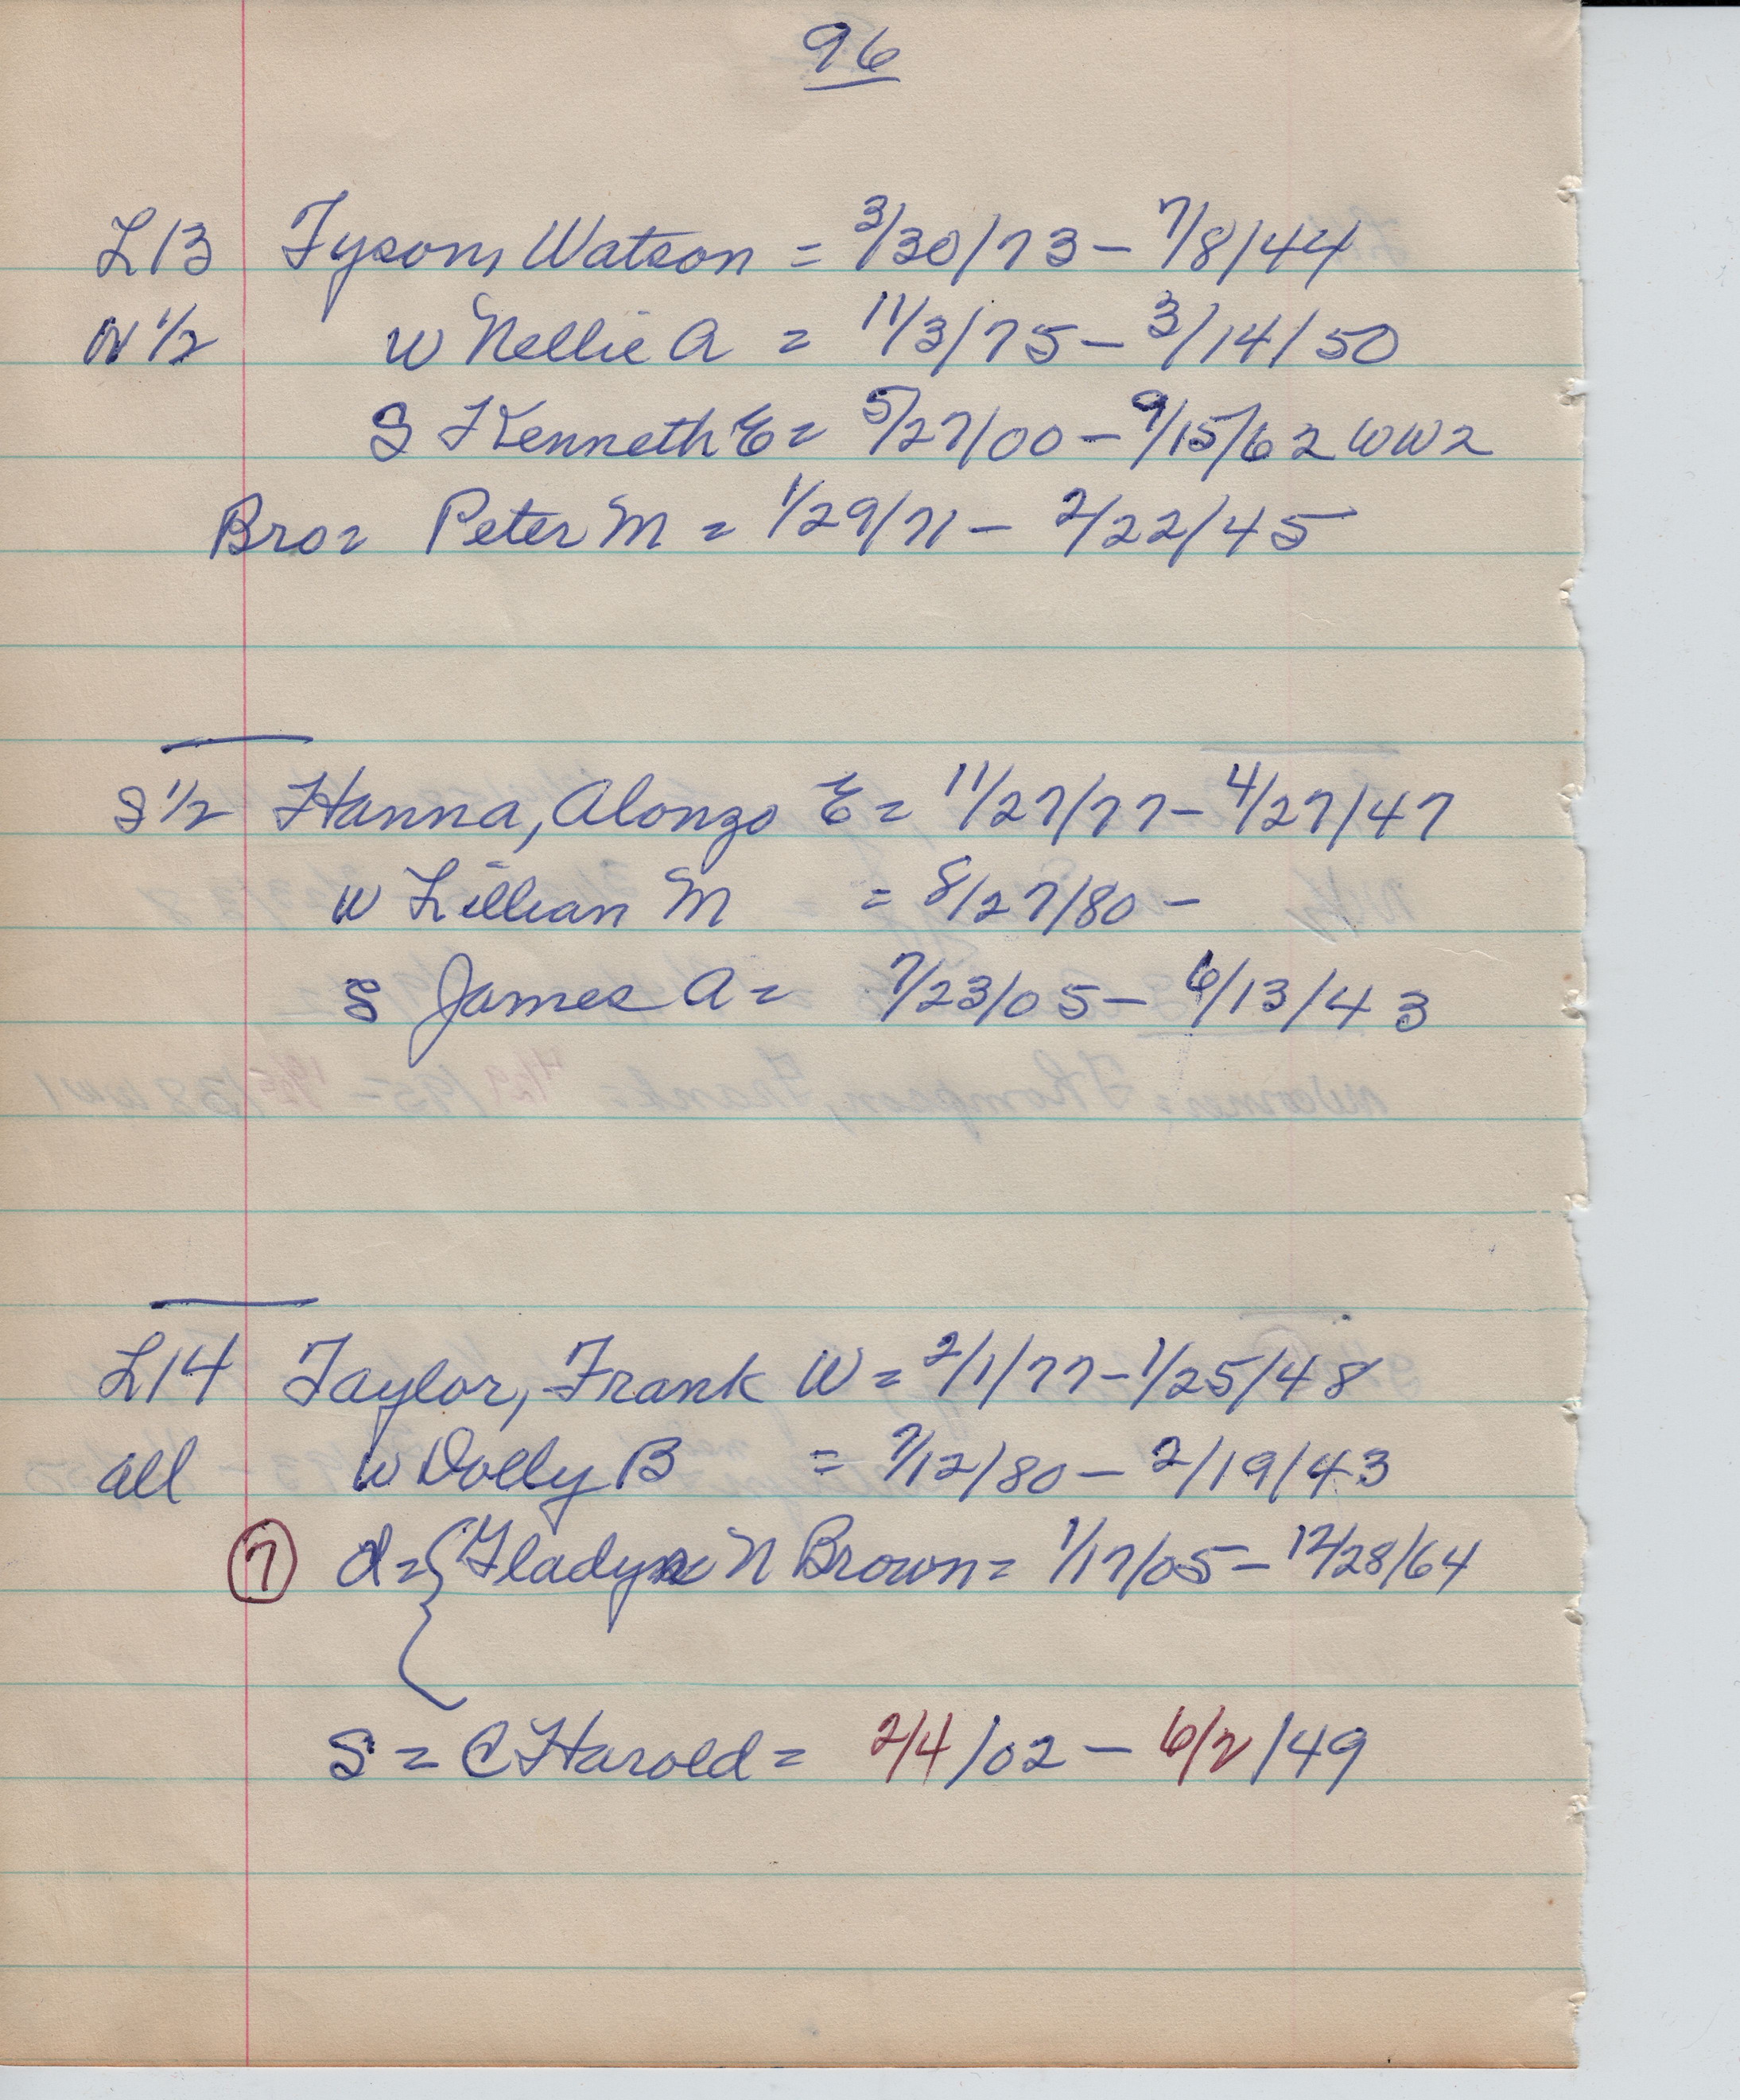 96
L13 Tyson, Watson = 3/30/73 - 7/8/44
N 1/2 W Nellie A = 11/3/75 - 3/14/50
S Kenneth E = 5/27/00 - 9/15/62 WW2
Bro = Peter M = 1/29/71 - 2/22/45
S 1/2 Hanna, Alonzo E = 11/27/77 - 4/27/47
W Lillian M = 8/27/80 -
S James A = 7/23/05 - 6/13/43
L14 Taylor, Frank W = 2/1/77 - 1/25/48
all W Dolly B = 7/12/80 - 2/19/43
7 d = { Gladys N Brown = 1/17/05 - 12/28/64
S = C Harold = 2/4/02 - 6/2/49